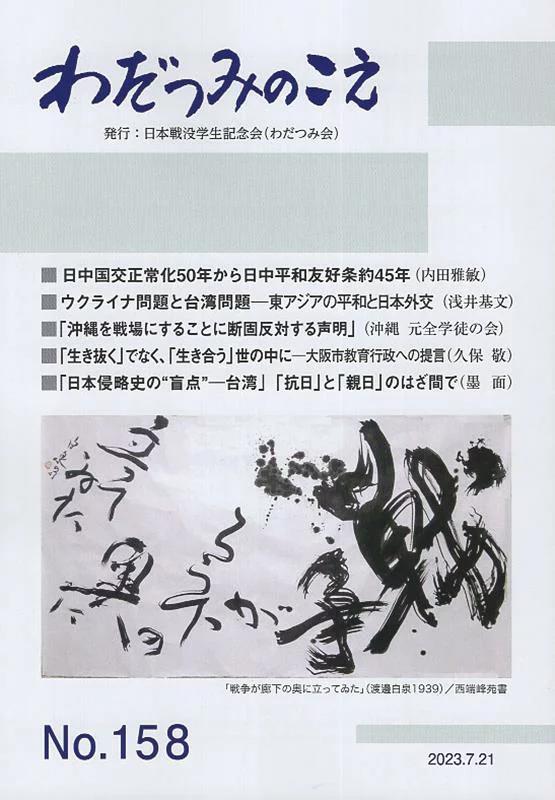 わだつみのこえ
発行:日本戦没学生記念会(わだつみ会)
■ 日中国交正常化50年から日中平和友好条約45年(内田雅敏)
■ ウクライナ問題と台湾問題―東アジアの平和と日本外交(浅井基文)
■ 「沖縄を戦場にすることに断固反対する声明」(沖縄 元全学徒の会)
■ 「生き抜く」でなく、「生き合う」世の中に―大阪市教育行政への提言(久保 敬)
■ 「日本侵略史の“盲点”―台湾」 「抗日」と「親日」のはざ間で(墨 面)
「戦争が廊下の奥に立ってゐた」(渡邊白泉1939)/西端峰苑書
No.158
2023.7.21